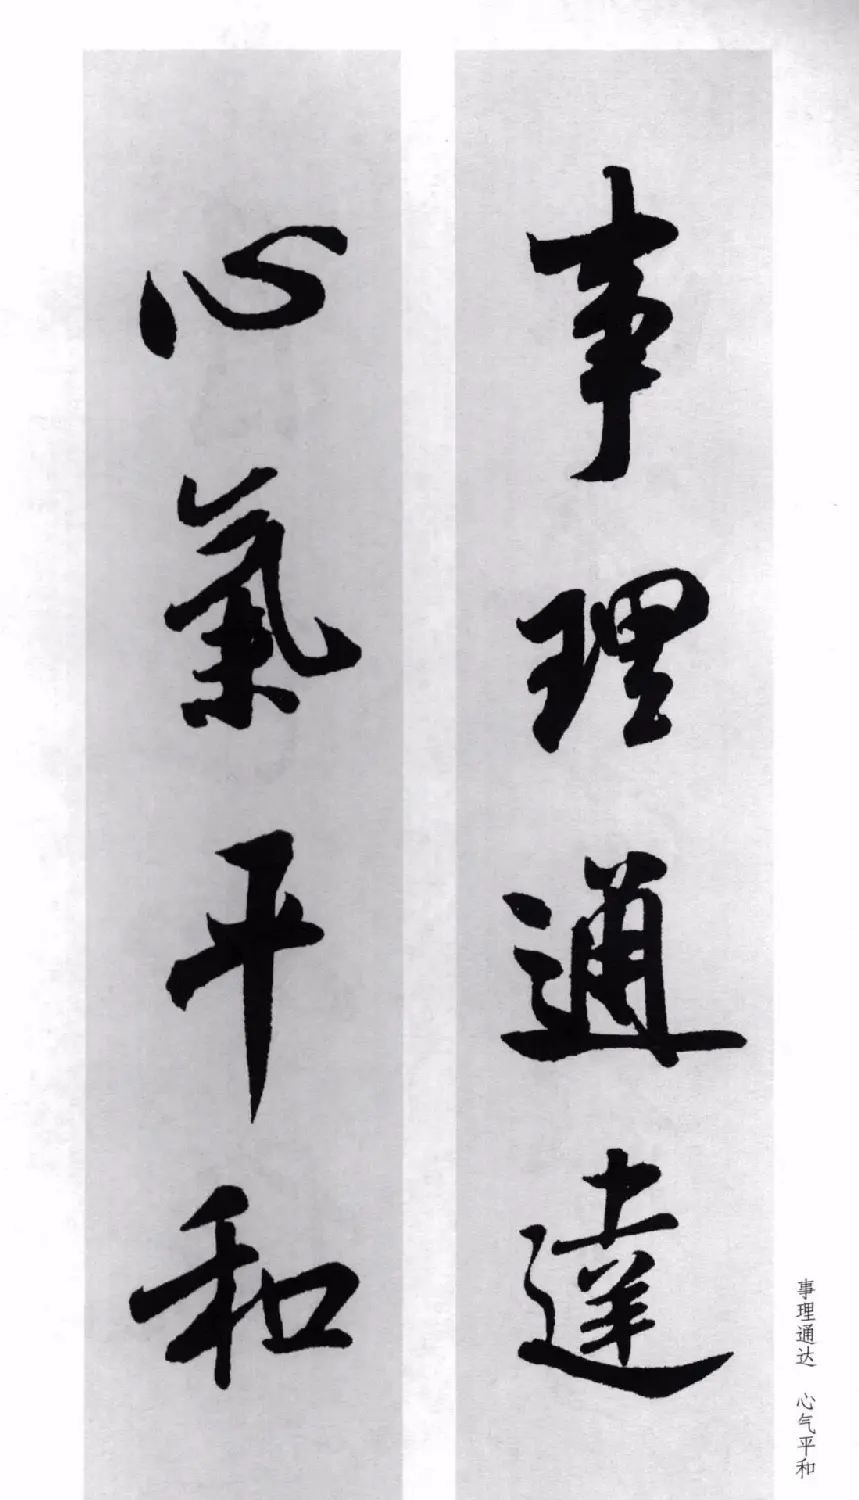 事理通達
心氣平和
事理通达 心气平和